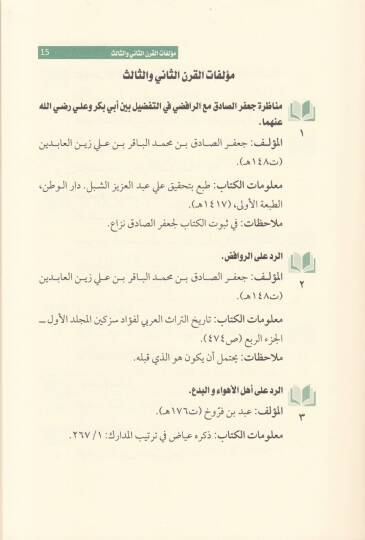 مؤلفات القرن الثاني والثالث 15
مؤلفات القرن الثاني والثالث
مناظرة جعفر الصادق مع الرافضي في التفضيل بين أبي بكر وعلي رضي الله
عنهما.
١
المؤلف: جعفر الصادق بن محمد الباقر بن علي زين العابدين
(ت١٤٨هـ).
معلومات الكتاب: طبع بتحقيق علي عبد العزيز الشبل. دار الوطن،
الطبعة الأولى، (١٤١٧هـ).
ملاحظات: في ثبوت الكتاب لجعفر الصادق نزاع.
الرد على الروافض.
٢
المؤلف: جعفر الصادق بن محمد الباقر بن علي زين العابدين
(ت١٤٨هـ).
معلومات الكتاب: تاريخ التراث العربي لفؤاد سزكين المجلد الأول ــ
الجزء الربع (ص٤٧٤).
ملاحظات: يحتمل أن يكون هو الذي قبله.
الرد على أهل الأهواء و البدع.
٣
المؤلف: عبد بن فرّوخ (ت١٧٦هـ).
معلومات الكتاب: ذكره عياض في ترتيب المدارك: ١/ ٢٦٧.